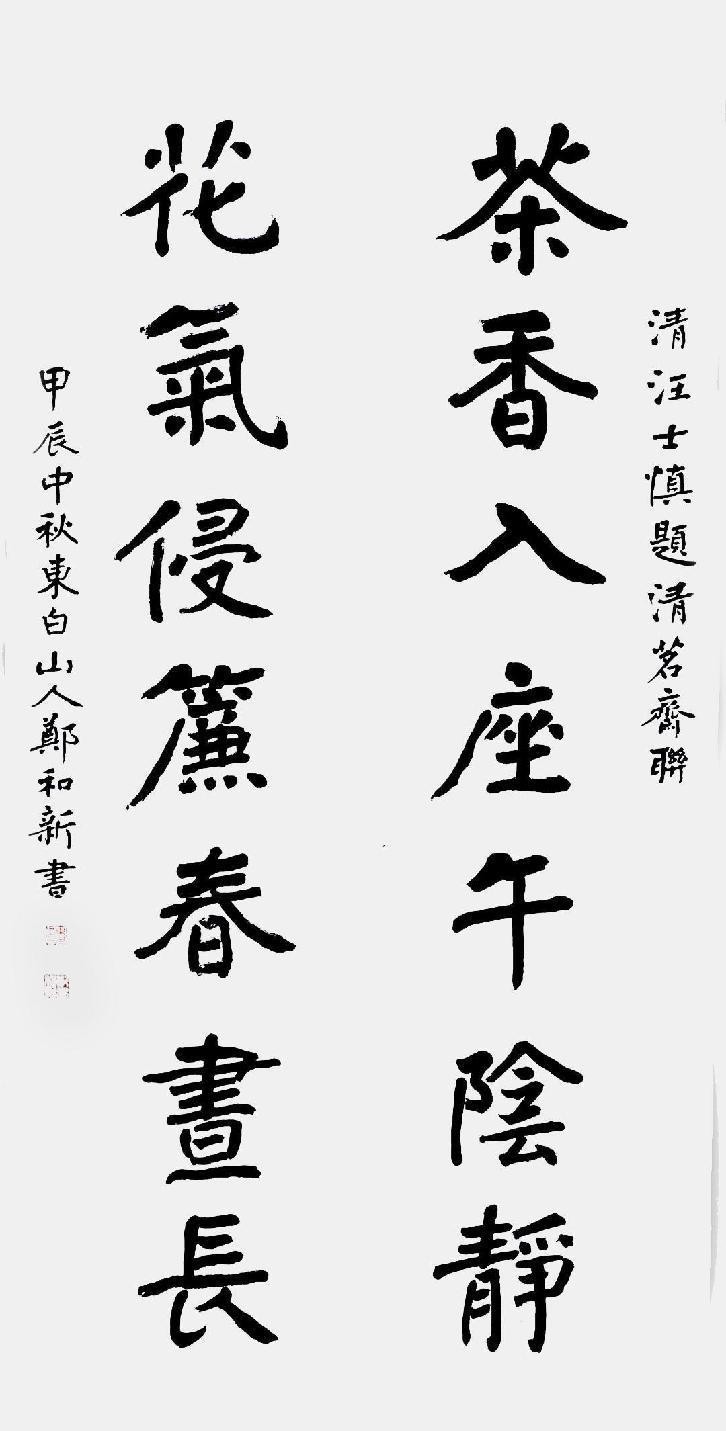 清汪士慎題清茗齋聯
茶香入座午陰靜
花氣侵簾春晝長
甲辰中秋東白山人鄭和新書